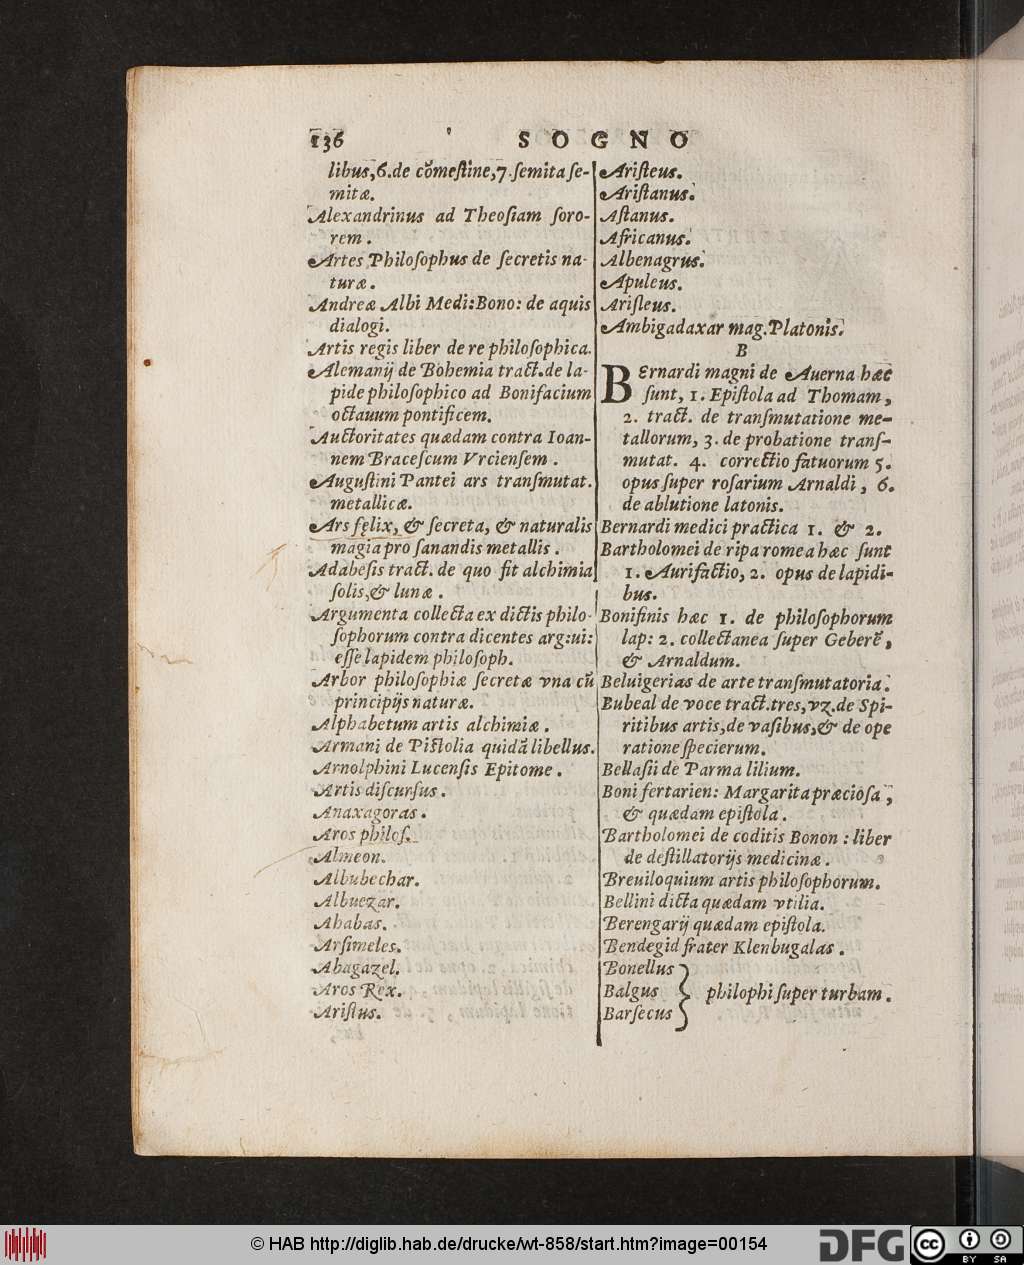 136 SOGNO
libus, 6. de cõmeſtine, 7. ſemita ſe-
mitæ.
Alexandrinus ad Theoſiam ſoro-
rem.
Artes Philoſophus de ſecretis na-
turæ.
Andreæ Albi Medi: Bono: de aquis
dialogi.
Artis regis liber de re philoſophica.
Alemanij de Bohemia tract. de la-
pide philoſophico ad Bonifacium
octauum pontificem.
Auctoritates quædam contra Ioan-
nem Braceſcum Vrcienſem.
Auguſtini Pantei ars tranſmutat.
metallicæ.
Ars fęlix, & ſecreta, & naturalis
magia pro ſanandis metallis.
Adabeſis tract. de quo fit alchimia
ſolis, & lunæ.
Argumenta collecta ex dictis philo-
ſophorum contra dicentes arg:ui:
eſſe lapidem philoſoph.
Arbor philoſophiæ ſecretæ vna cũ
principijs naturæ.
Alphabetum artis alchimiæ.
Armani de Piſtolia quidã libellus.
Arnolphini Lucenſis Epitome.
Artis diſcurſus.
Anaxagoras.
Aros philoſ.
Almeon.
Albubechar.
Albuezar.
Ababas.
Arſimeles.
Abagazel.
Aros Rex.
Ariſtus.
Ariſteus.
Ariſtanus.
Aſtanus.
Africanus.
Albenagrus.
Apuleus.
Ariſleus.
Ambigadaxar mag. Platonis.
B
Bernardi magni de Auerna hæc
ſunt, 1. Epiſtola ad Thomam,
2. tract. de tranſmutatione me-
tallorum, 3. de probatione tranſ-
mutat. 4. correctio fatuorum 5.
opus ſuper roſarium Arnaldi, 6.
de ablutione latonis.
Bernardi medici practica 1. & 2.
Bartholomei de ripa romea hæc ſunt
1. Aurifactio, 2. opus de lapidi-
bus.
Bonifinis hæc 1. de philoſophorum
lap: 2. collectanea ſuper Geberẽ,
& Arnaldum.
Beluigerias de arte tranſmutatoria.
Bubeal de voce tract. tres, vz. de Spi-
ritibus artis, de vaſibus, & de ope
ratione ſpecierum.
Bellaſii de Parma lilium.
Boni fertarien: Margarita præcioſa,
& quædam epiſtola.
Bartholomei de coditis Bonon: liber
de deſtillatorijs medicinæ.
Breuiloquium artis philoſophorum.
Bellini dicta quædam vtilia.
Berengarij quædam epiſtola.
Bendegid frater Klenbugalas.
Bonellus
Balgus philophi ſuper turbam.
Barſecus
© HAB http://diglib.hab.de/drucke/wt-858/start.htm?image=00154
DFG
cc BY SA